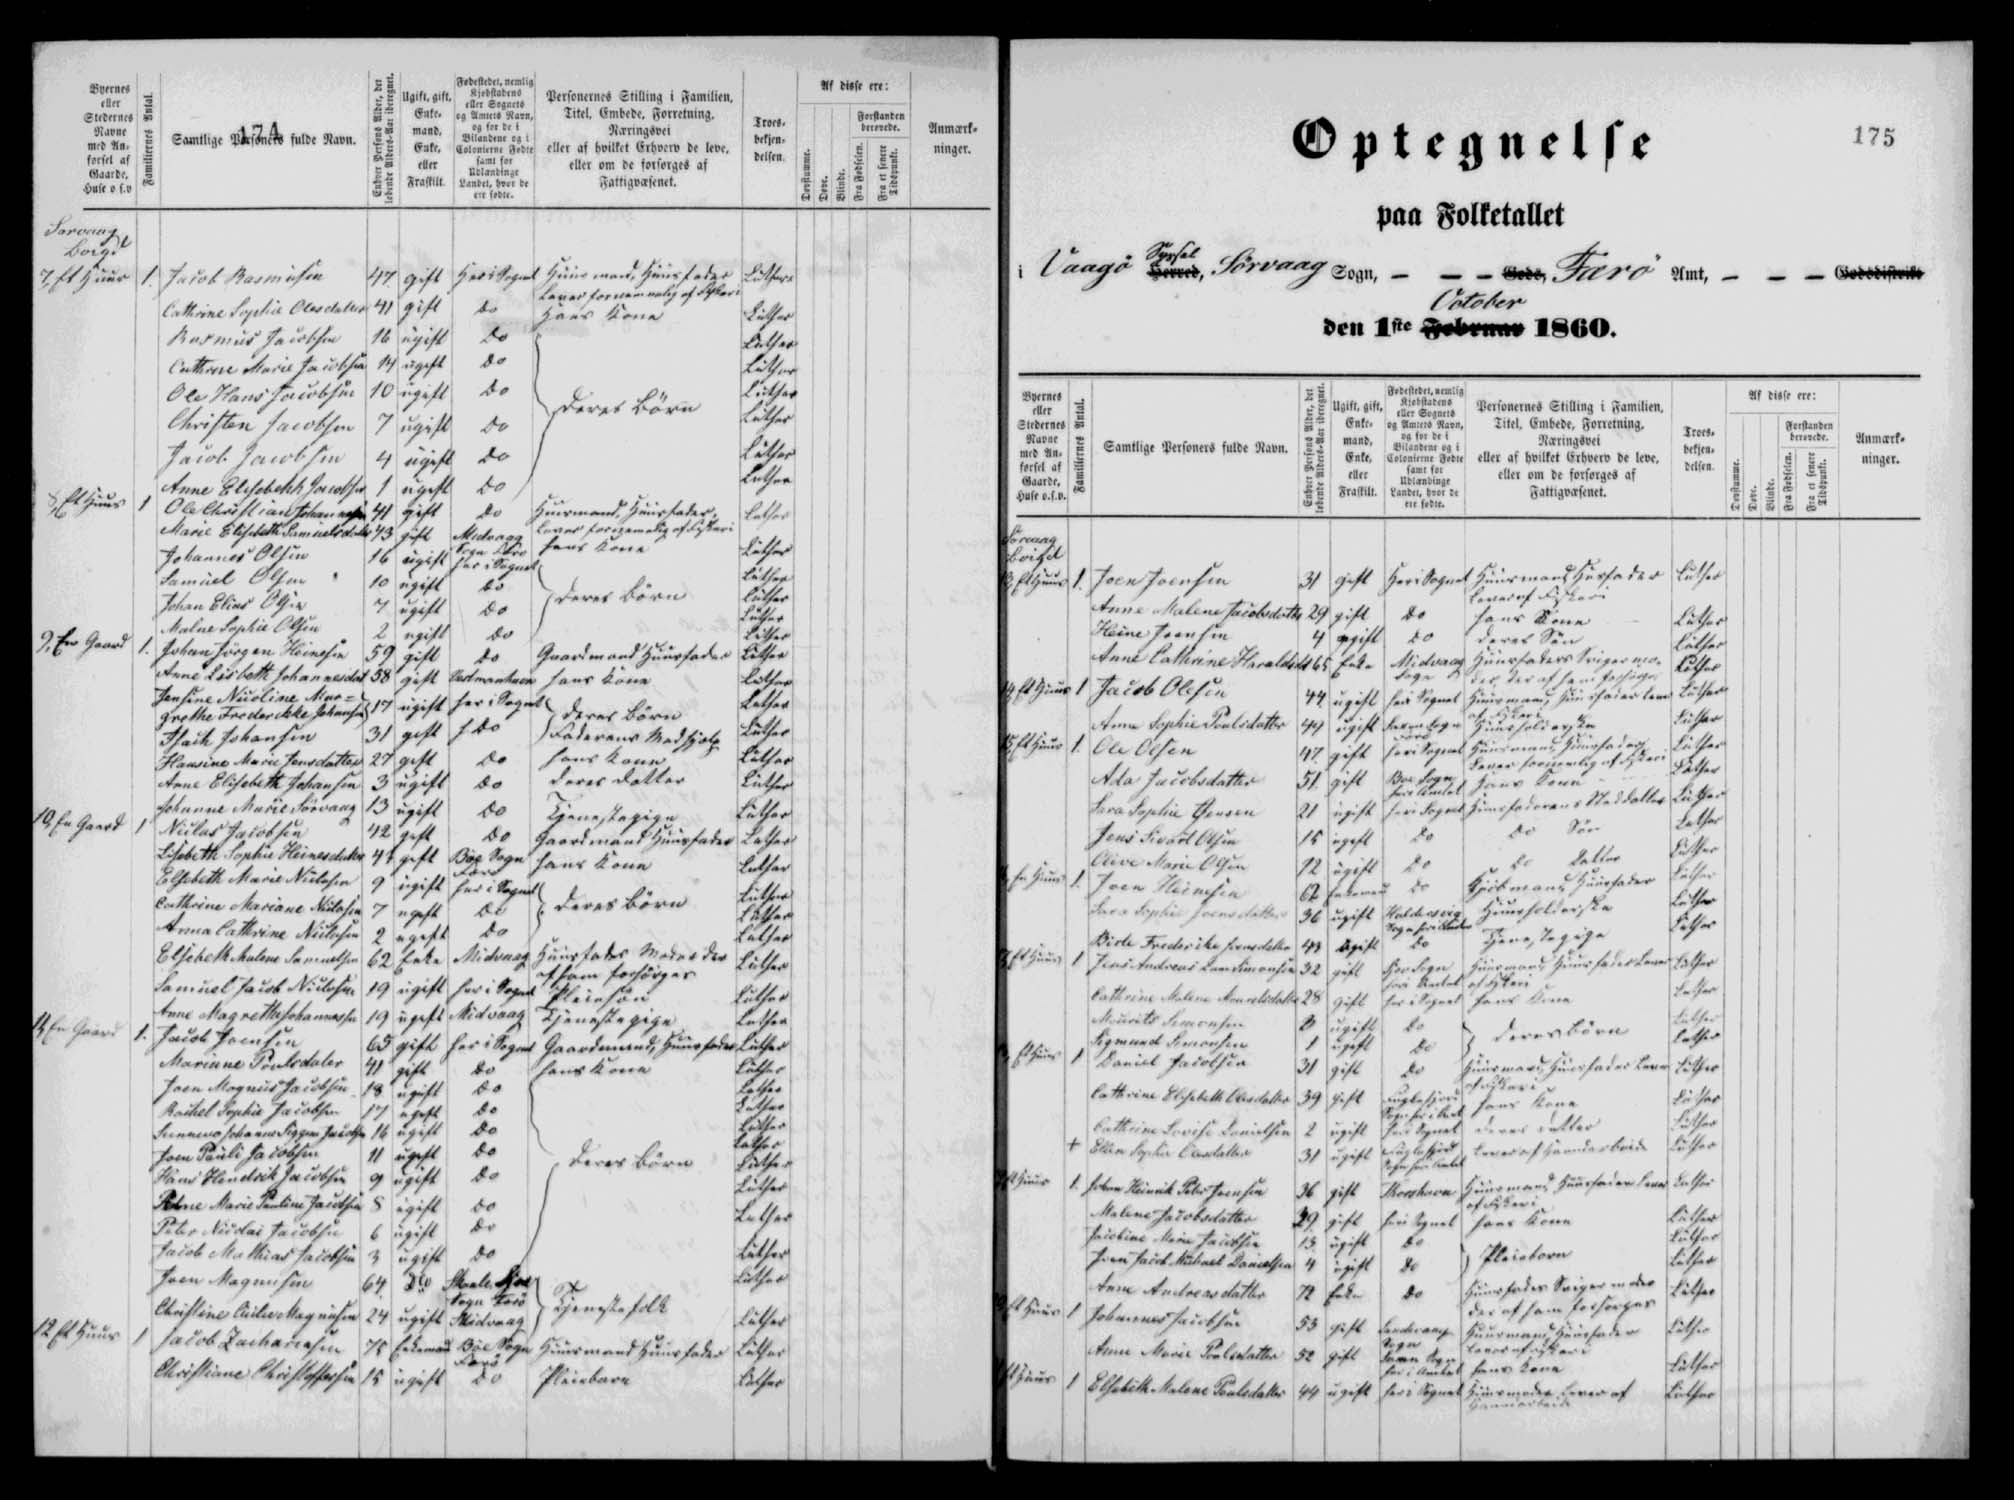 174
Byernes eller Stedernes Navne med Anforsel af Gaarde, Huse o s.v
Familiernes Antal.
Samtlige Personers fulde Navn.
Enhver Persons Alder, det løbende Alders-Aar iberegnet.
Ugift, gift, Enkemand, Enke, eller Fraskilt.
Fødestedet, nemlig Kjøbstadens eller Sognets og Amtets Navn, og for de i Bilandene og i Colonierne Fødte samt for Udlændinge Landet, hvor de ere fødte.
Personernes Stilling i Familien, Titel, Embede, Forretning, Næringsvei eller af hvilket Erhverv de leve, eller om de forsørges af Fattigvæsenet.
Troesbekjendelsen.
Af disse ere:
Døvstumme.
Døve.
Blinde.
Forstanden berøvede.
Fra Fødselen.
Fra et senere Tidspunkt.
Anmærkninger.
Sørvaag
Boigd
7, Et Huus 1. Jacob Rasmusen 47 gift Her i Sognet Huusmand, Huusfader Luther
Lever fornemmelig af Fiskeri
Cathrine Sophie Olesdatter 41 gift do Hans Kone Luther
Rasmus Jacobsen 16 ugift do Luther
Cathrine Marie Jacobsen 14 ugift do Luther
Ole Hans Jacobsen 10 ugift do deres Börn Luther
Christen Jacobsen 7 ugift do Luther
Jacob Jacobsen 4 ugift do Luther
Anne Elisabeth Jacobsen 1 ugift do Luther
8, Et Huus 1 Ole Christian Johannesen 41 gift do Huusmand, Huusfader, Luther
Lever fornemmelig af Fiskeri
Marie Elisabeth Samuelsdatter 43 gift Midvaag Sogn Færø hans Kone Luther
Johannes Olsen 16 ugift her i Sognet Luther
Samuel Olsen 10 ugift do deres Börn Luther
Johan Elias Olsen 7 ugift do Luther
Malene Sophie Olsen 2 ugift do Luther
9, En Gaard 1. Johan Jörgen Heinesen 59 gift do Gaardmand Huusfader Luther
Anne Lisbeth Johannesdat 58 gift Vestmanhavn hans Kone Luther
Jensine Nicoline Mar=
grethe Frederikke Johansen 17 ugift her i Sognet deres Börn Luther
Isach Johansen 31 gift do Faderens Medhjælp Luther
Hansine Marie Jensdatter 27 gift do hans Kone Luther
Anne Elisabeth Johansen 3 ugift do deres datter Luther
Johanne Marie Sörvaag 13 ugift do Tjenestepige Luther
10, En Gaard 1 Niclas Jacobsen 42 gift do Gaardmand Huusfader Luther
Lisebeth Sophie Heinesdatter gift Böe Sogn Færø hans Kone Luther
Elsebeth Marie Niclasen 9 ugift her i Sognet Luther
Cathrine Mariane Niclasen 7 ugift do deres Börn Luther
Anna Cathrine Niclasen 2 ugift do Luther
Elsebeth Malene Samuelsen 62 Enke Midvaag Huusfaders Moder der Luther
af ham forsörges
Samuel Jacob Niclasen 19 ugift her i Sognet Pleiesön Luther
Anne Magrethe Johannesen 19 ugift Midvaag Tjenestepige Luther
11, En Gaard 1. Jacob Joensen 65 gift her i Sognet Gaardmand, Huusfader Luther
Marianne Poulsdater 41 gift do hans Kone Luther
Joen Magnus Jacobsen 18 ugift do Luther
Rachel Sophie Jacobsen 17 ugift do Luther
Sunneva Johanna Jacobsen 16 ugift do Luther
Joen Pauli Jacobsen 11 ugift do deres Börn Luther
Hans Hendrik Jacobsen 9 ugift do Luther
Marie Pauline Jacobsen 8 ugift do Luther
Peter Nicolai Jacobsen 6 ugift do Luther
Jacob Mathias Jacobsen 3 ugift do Luther
Joen Magnusen 64 do Sogn Færø Tjenestefolk Luther
Christine Magnusen 24 ugift Midvaag Luther
12, Et Huus 1 Jacob Zachariasen 75 Enkemand Böe Sogn Færø Huusmand Huusfader Luther
Christiane Christoffersen 15 ugift do Pleiebarn Luther
Optegnelse
175
paa Folketallet
i Vaagö Syssel Herred, Sörvaag Sogn, - - - Gods, Færö Amt, - - - Godsdistrikt
October
den 1ste Februar 1860.
Byernes eller Stedernes Navne med Anforsel af Gaarde, Huse o.s.v.
Familiernes Antal.
Samtlige Personers fulde Navn.
Enhver Persons Alder, det løbende Alders-Aar iberegnet.
Ugift, gift, Enkemand, Enke, eller Fraskilt.
Fødestedet, nemlig Kjøbstadens eller Sognets og Amtets Navn, og for de i Bilandene og i Colonierne Fødte samt for Udlændinge Landet, hvor de ere fødte.
Personernes Stilling i Familien, Titel, Embede, Forretning, Næringsvei eller af hvilket Erhverv de leve, eller om de forsørges af Fattigvæsenet.
Troesbekjendelsen.
Af disse ere:
Døvstumme.
Døve.
Blinde.
Forstanden berøvede.
Fra Fødselen.
Fra et senere Tidspunkt.
Anmærkninger.
Sörvaag
Boigd
13, Et Huus 1. Joen Joensen 31 gift Her i Sognet Huusmand Husfader Luther
Lever af Fiskeri
Anne Malene Jacobsdatter 29 gift do hans Kone Luther
Heine Joensen 4 ugift do deres Sön Luther
Anne Cathrine Haraldsdat 65 Enke Midvaag Sogn Huusfaders Svigermoder, der af ham forsörges Luther
14, Et Huus 1 Jacob Olesen 44 ugift her i Sognet Huusmand, Huusfader lever af Fiskeri Luther
Anne Sophie Poulsdatter ugift Huusholderske Luther
15, Et Huus 1. Ole Olsen 47 gift her i Sognet Huusmand, Huusfader Luther
Lever fornemmelig af Fiskeri
Ada Jacobsdatter 51 gift Böe Sogn her i Amtet Hans Kone Luther
Sara Sophie Joensen 21 ugift her i Sognet Huusfaderens Steddatter Luther
Jens Sivart Olsen 15 ugift do do Sön Luther
Olive Marie Olsen 12 ugift do do Datter Luther
En Huus 1. Joen Heinesen 62 Enkemand do Huusfader Luther
Sara Sophie Joensdatter 36 ugift Huusholderske Luther
Birte Frederike Joensdatter ugift do Tjenestepige Luther
Et Huus 1 Jens Andreas Simonsen 32 gift Sogn her i Amtet Huusmand, Huusfader Lever af Fiskeri Luther
Cathrine Malene 28 gift her i Sognet hans Kone Luther
Mourits Simonsen ugift do deres Börn Luther
Sigmund Simonsen 1 ugift do Luther
Et Huus 1 Daniel Jacobsen 31 gift do Huusmand, Huusfader Lever af Fiskeri Luther
Cathrine Elisabeth Olesdatter 39 gift Fuglefjord Sogn her i Amtet hans Kone Luther
Cathrine Lovise Danielsen 2 ugift her i Sognet deres datter Luther
+ Ellen Sophie Olesdatter 31 ugift Fuglefjord Sogn her i Amtet Lever af Haandarbeide Luther
Et Huus 1. Johan Heinrik Peter Joensen 36 gift Thorshavn Huusmand Huusfader lever af Fiskeri Luther
Malene Jacobsdatter 39 gift her i Sognet hans Kone Luther
Jacobine Marie Jacobsen 13 ugift do Pleiebørn Luther
Joen Jacob Michael Danielsen 4 ugift do Luther
Anne Andreasdatter 72 Enke do Huusfaders Svigermoder der af ham forsörges Luther
Et Huus 1 Johannes Jacobsen 53 gift Sandevaag Sogn Huusmand, Huusfader Lever af Fiskeri Luther
Anne Marie Poulsdatter 52 gift Sogn her i Amtet hans Kone Luther
Et Huus 1 Elsebeth Malene Poulsdatter 44 ugift her i Sognet Huusmoder Lever af Haandarbeide Luther